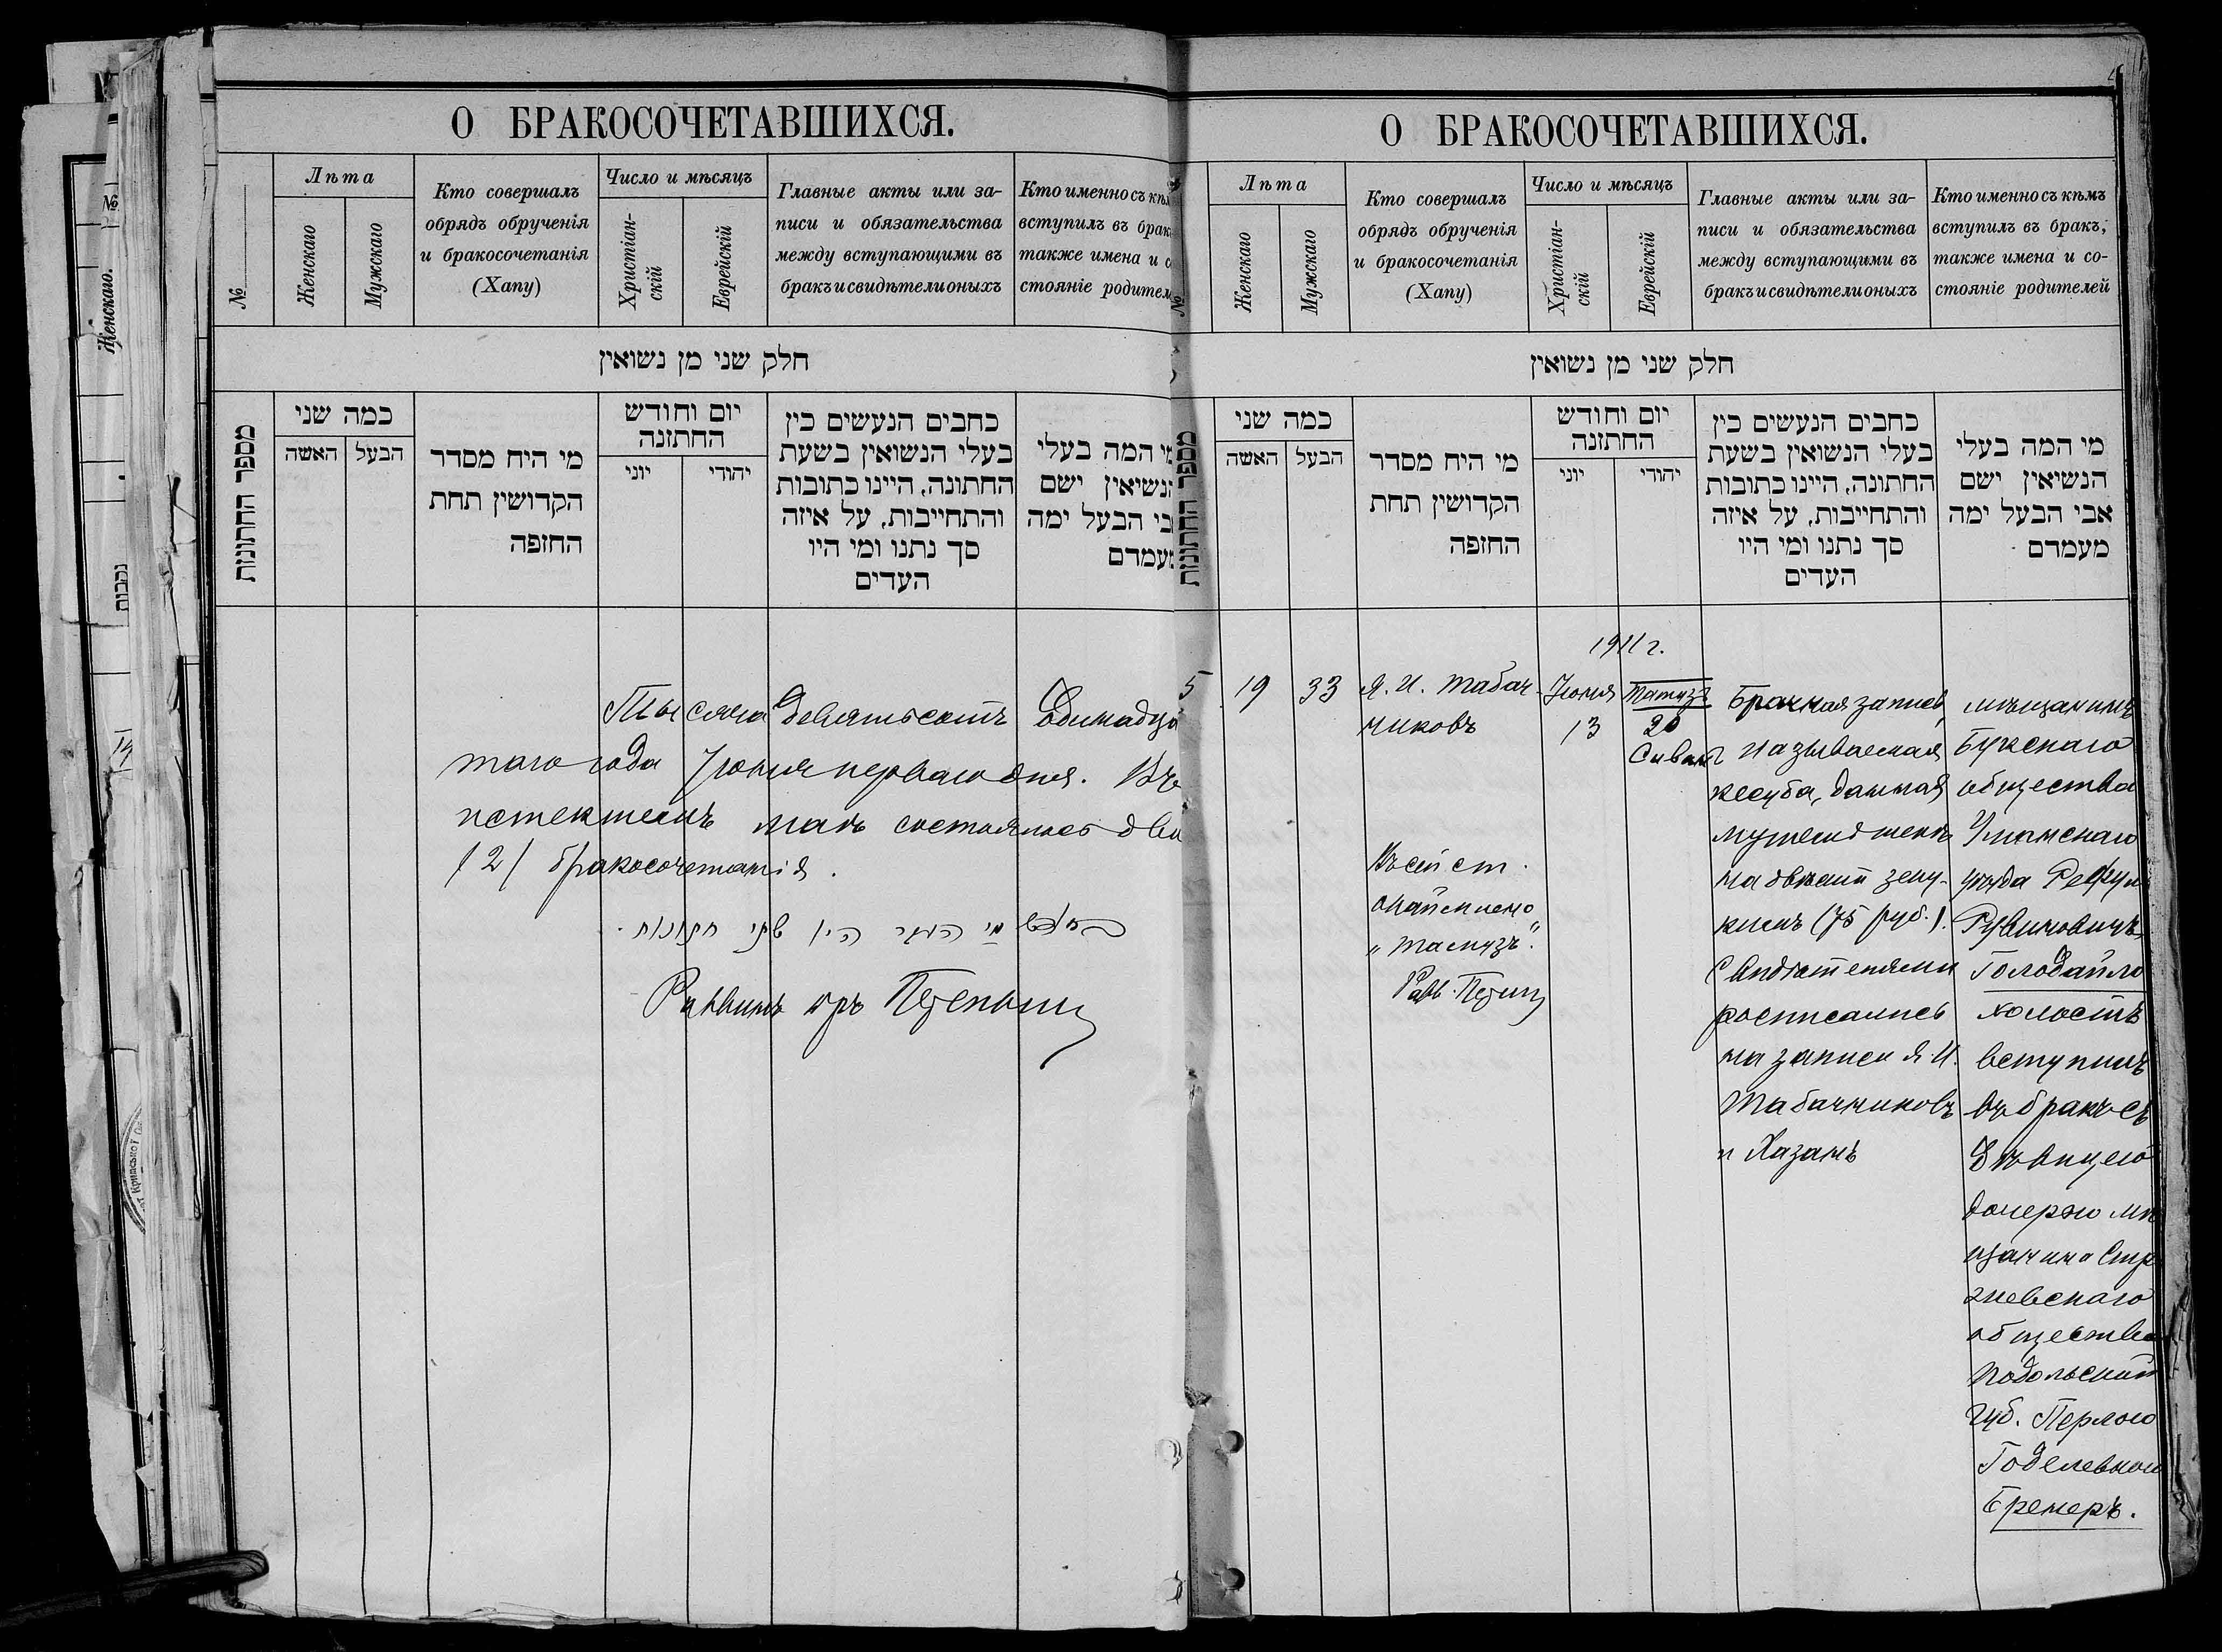 О БРАКОСОЧЕТАВШИХСЯ.
№
Лѣта
Женскаго
Мужскаго
Кто совершалъ
обрядъ обрученія
и бракосочетанія
(Хапу)
Число и мѣсяцъ
Христіан-
скій
Еврейскій
Главные акты или за-
писи и обязательства
между вступающими въ
бракъ и свидѣтели оныхъ
Кто именно съ
вступилъ въ
также имена и
стояніе
חלק שני מן נשואין
מספר החתונות
כמה שני
האשה
הבעל
מי היח מסדר
הקדושין תחת
החזפה
יום וחודש
החתונה
יוני
יהודי
כתבים הנעשים בין
בעלי הנשואין בשעת
החתונה, היינו כתובות
והתחייבות, על איזה
סך נתנו ומי היו
העדים
המה בעלי
ישם
הבעל ימה
מעמדם
Тысяча девятьсотъ одинадца
таго года Іюня перваго дня. Въ
истекшемъ маѣ состоялось два
/2/ бракосочетанія.
שתי חתונות
Раввинъ
О БРАКОСОЧЕТАВШИХСЯ.
№
Лѣта
Женскаго
Мужскаго
Кто совершалъ
обрядъ обрученія
и бракосочетанія
(Хапу)
Число и мѣсяцъ
Христіан-
скій
Еврейскій
Главные акты или за-
писи и обязательства
между вступающими въ
бракъ и свидѣтели оныхъ
Кто именно съ кѣмъ
вступилъ въ бракъ,
также имена и со-
стояніе родителей
חלק שני מן נשואין
מספר החתונות
כמה שני
האשה
הבעל
מי היח מסדר
הקדושין תחת
החזפה
יום וחודש
החתונה
יוני
יהודי
כתבים הנעשים בין
בעלי הנשואין בשעת
החתונה, היינו כתובות
והתחייבות, על איזה
סך נתנו ומי היו
העדים
מי המה בעלי
הנשיאין ישם
אבי הבעל ימה
מעמדם
1911 г.
5
19
33
Я. И. Табач-
никовъ
Іюня
13
Тамузъ
20
Сивана
Въ сей ст.
"Тамузъ".
Равв.
Брачная запись,
называемая
кесуба, данная
мужемъ женѣ
на двѣсти зену-
кимъ (75 руб.).
Свидѣтелями
росписались
на записи Я. И.
Табачниковъ
и Хазанъ
мѣщанинъ
Букскаго
общества
Уманскаго
уѣзда
Рувиновичъ
Голодайло
холостъ
вступилъ
въ бракъ съ
дѣвицею
дочерью мѣ
щанина
общества
Подольской
губ. Перлою
Годелевною
Бремеръ.